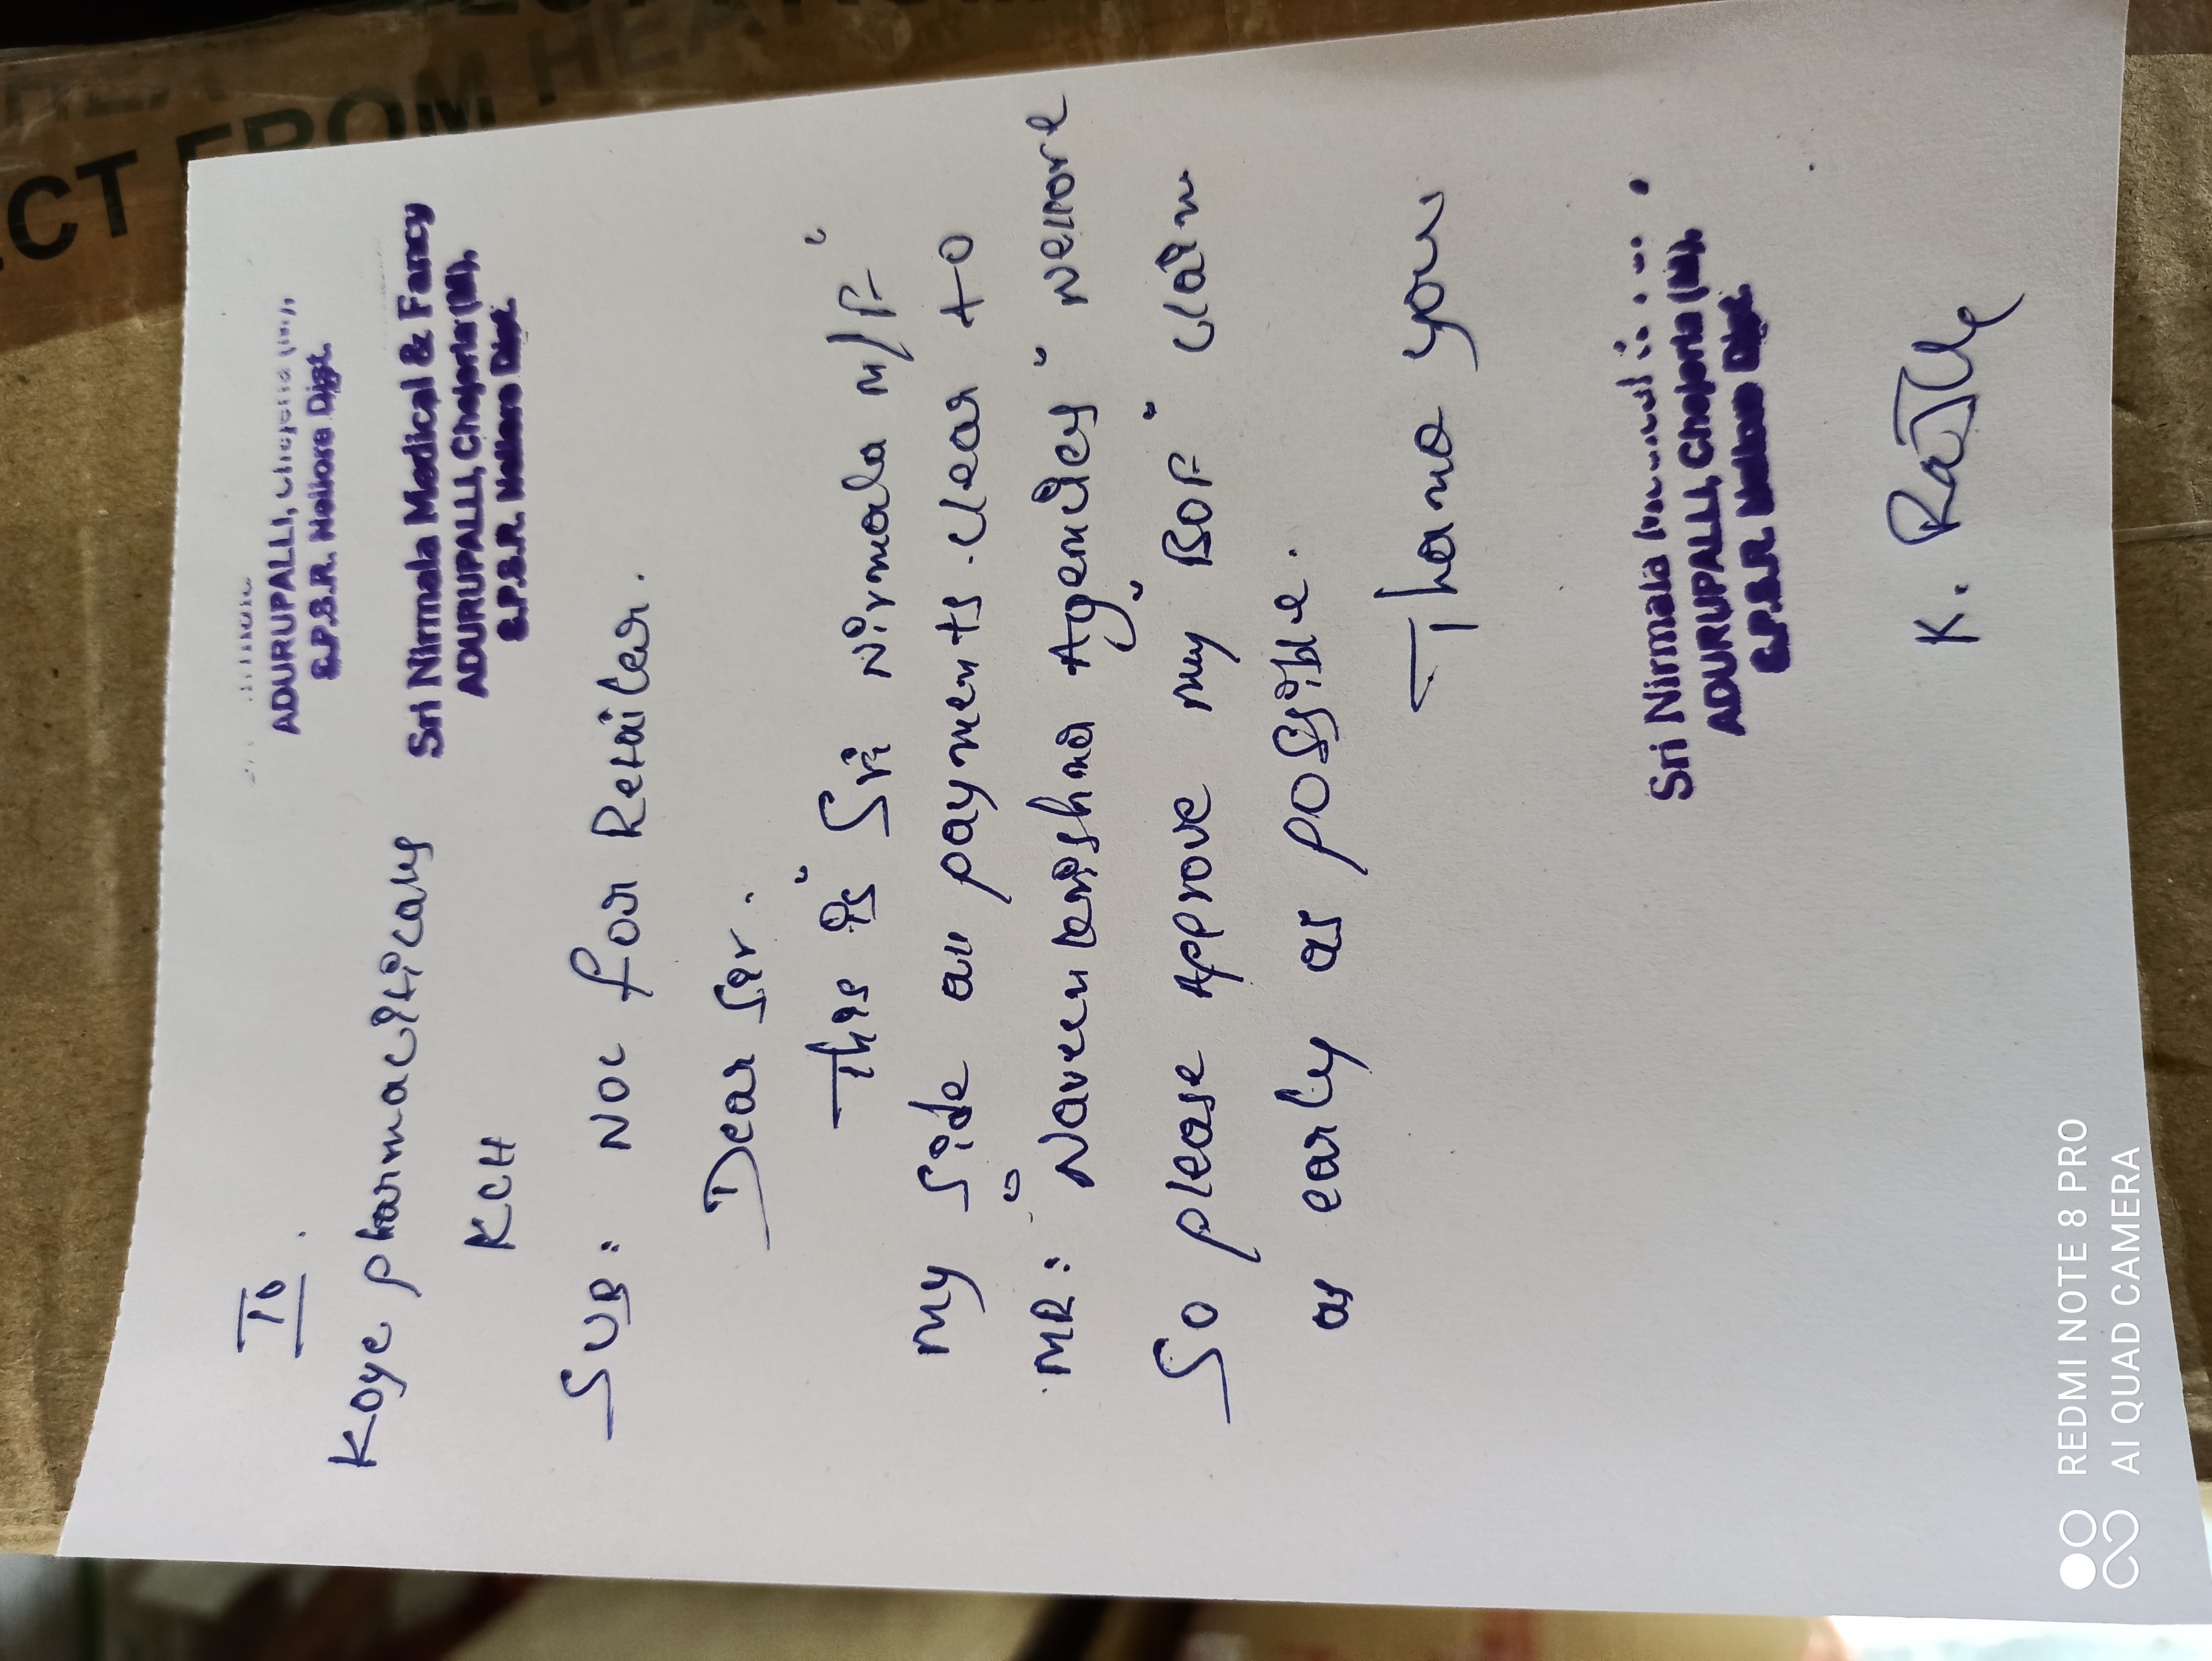 To
ADURUPALLI, Chejerla (M),
S.P.S.R. Nellore Dist.
Koye pharmaciticals
Sri Nirmala Medical & Fancy
ADURUPALLI, Chejerla (M),
S.P.S.R. Nellore Dist.
KCH
SUB: NOC for Retailer.
Dear Sir.
This is "Sri Nirmala M/F"
My Side all payments clear to
MR: "Naveen krishna Agencies" Nellore
So please Approve my "BOF" claim
as early as possible.
Thank you
Sri Nirmala
ADURUPALLI, Chejerla (M),
S.P.S.R. Nellore Dist.
K. Raja
REDMI NOTE 8 PRO
AI QUAD CAMERA
CT FROM HEA